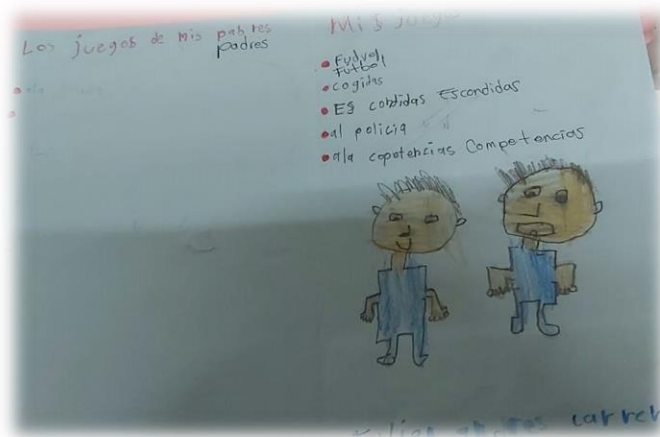 Los juegos de mis pabres
padres
Mis juegos
Fudvol
Futbol
cogidas
Es cobdidas Escondidas
al policia
ala copotencias Competencias